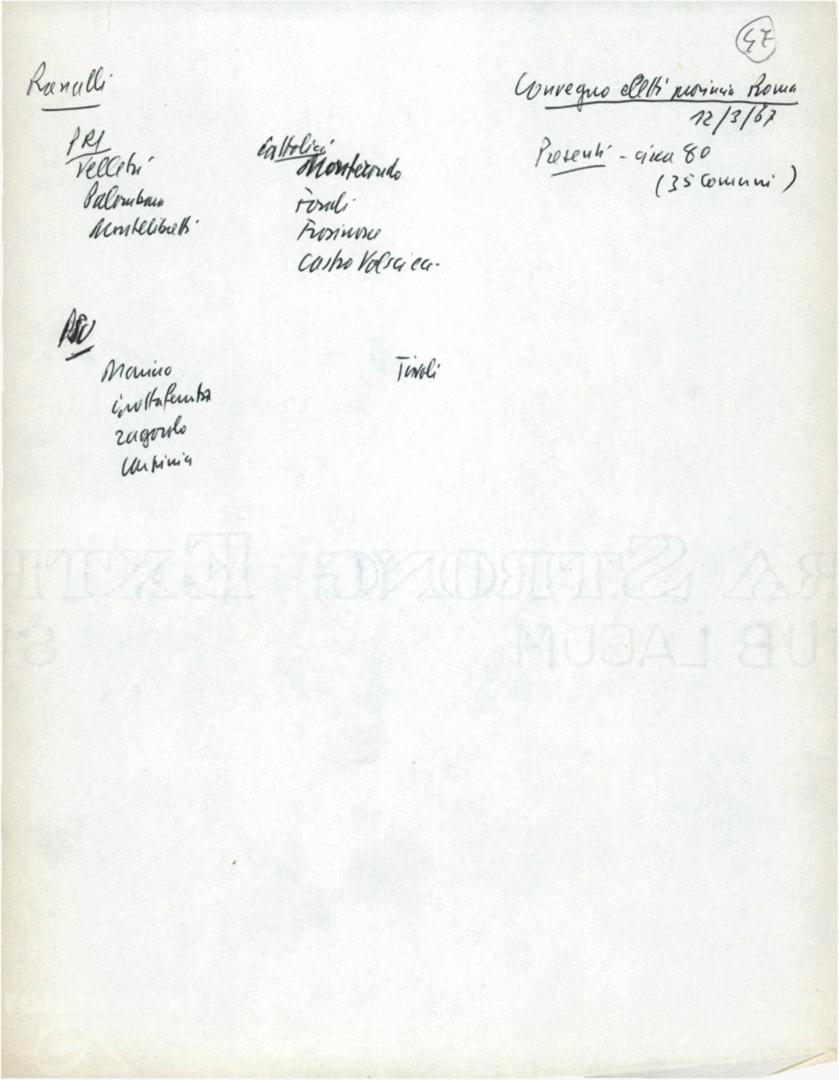 47
Ranalli
Convegno eletti provincia Roma
12/3/67
Presenti - circa 80
(35 Comuni)
PRI
Velletri
Palombara
Montelibretti
Cattolici
Monterotondo
Fondi
Frosinone
Castro Volsci ecc.
PSU
Marino
Grottaferrata
Zagarolo
Tivoli